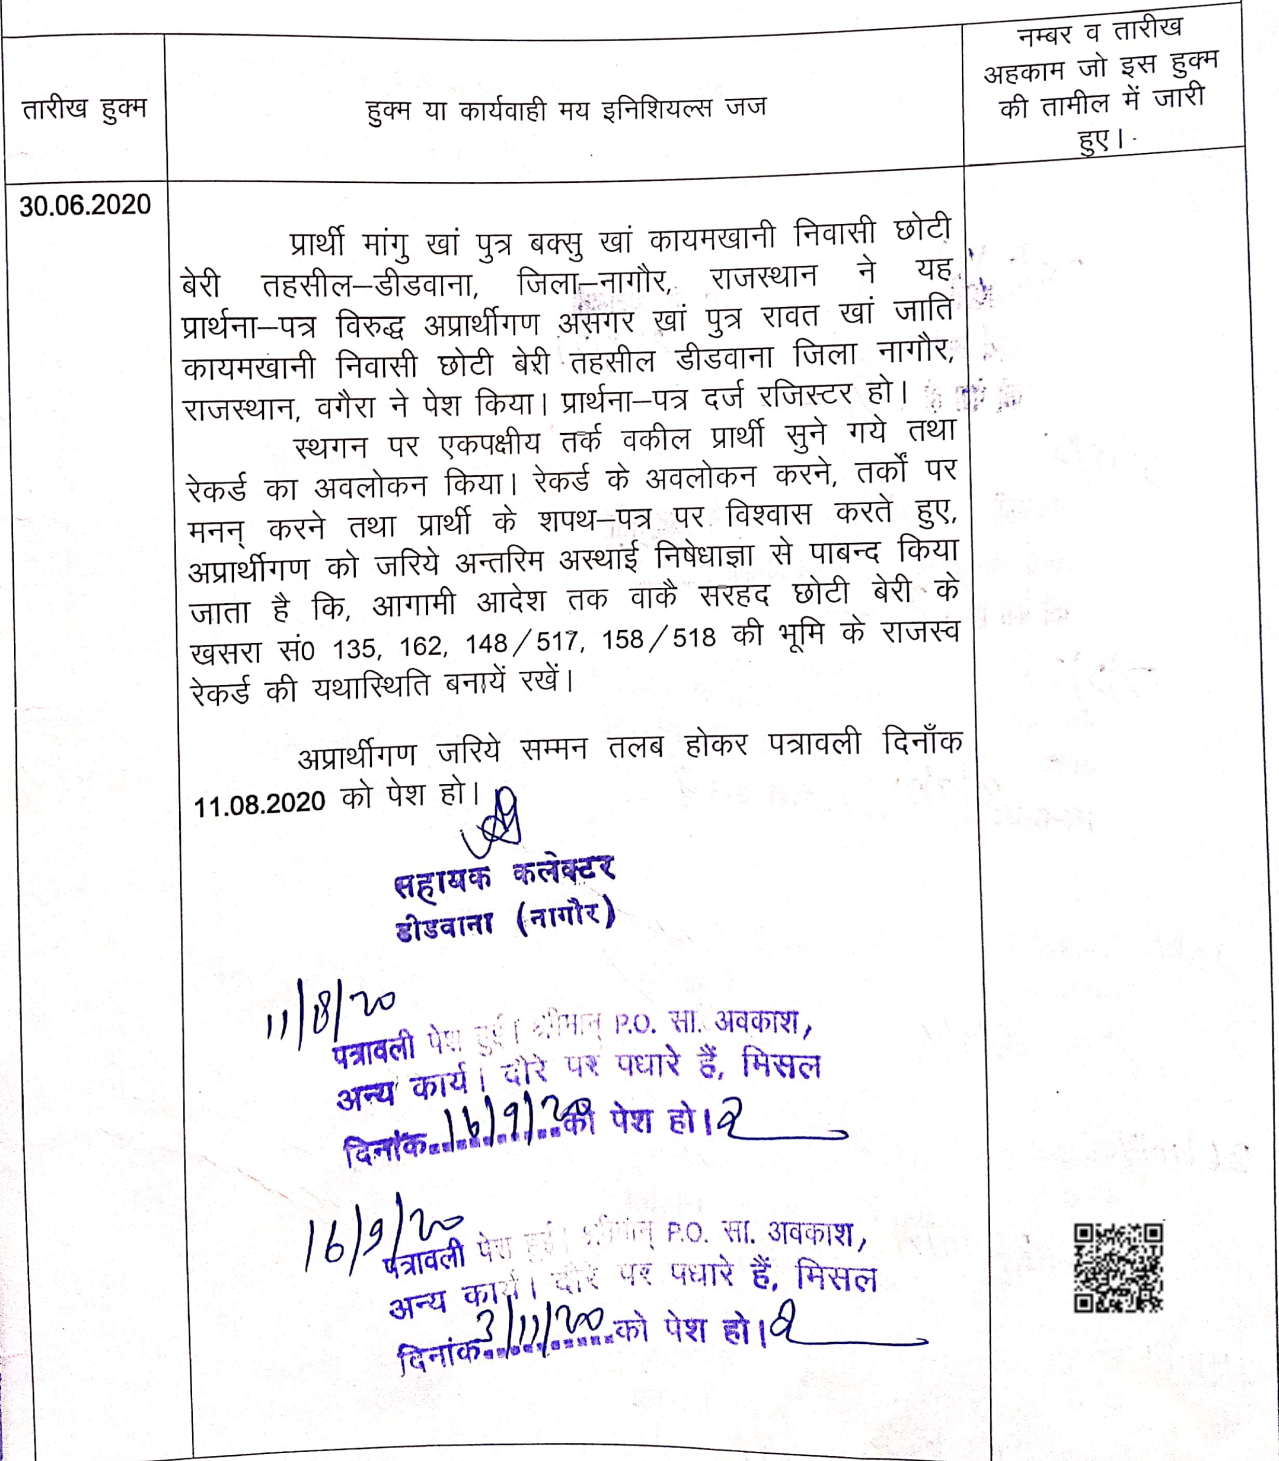 तारीख हुक्म
हुक्म या कार्यवाही मय इनिशियल्स जज
नम्बर व तारीख
अहकाम जो इस हुक्म
की तामील में जारी
हुए।
30.06.2020
प्रार्थी मांगु खां पुत्र बक्सु खां कायमखानी निवासी छोटी
बेरी तहसील–डीडवाना, जिला–नागौर, राजस्थान ने यह
प्रार्थना–पत्र विरुद्ध अप्रार्थीगण असगर खां पुत्र रावत खां जाति
कायमखानी निवासी छोटी बेरी तहसील डीडवाना जिला नागौर,
राजस्थान, वगैरा ने पेश किया। प्रार्थना–पत्र दर्ज रजिस्टर हो।
स्थगन पर एकपक्षीय तर्क वकील प्रार्थी सुने गये तथा
रेकर्ड का अवलोकन किया। रेकर्ड के अवलोकन करने, तर्कों पर
मनन् करने तथा प्रार्थी के शपथ–पत्र पर विश्वास करते हुए,
अप्रार्थीगण को जरिये अन्तरिम अस्थाई निषेधाज्ञा से पाबन्द किया
जाता है कि, आगामी आदेश तक वाकै सरहद छोटी बेरी के
खसरा सं0 135, 162, 148/517, 158/518 की भूमि के राजस्व
रेकर्ड की यथास्थिति बनायें रखें।
अप्रार्थीगण जरिये सम्मन तलब होकर पत्रावली दिनाँक
11.08.2020 को पेश हो।
सहायक कलेक्टर
डीडवाना (नागौर)
11/8/20
पत्रावली पेश हुई। श्रीमान् P.O. सा. अवकाश,
अन्य कार्य। दौरे पर पधारे हैं, मिसल
दिनांक 16/9/20 को पेश हो।
16/9/20
पत्रावली पेश हुई। श्रीमान् P.O. सा. अवकाश,
अन्य कार्य। दौरे पर पधारे हैं, मिसल
दिनांक 3/11/20 को पेश हो।